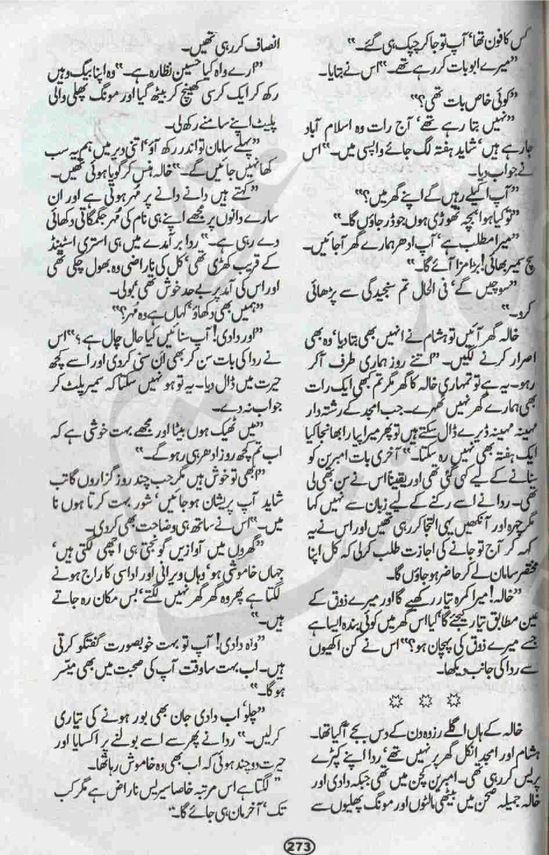 کس کا فون تھا‘ آپ تو جا کر چپک ہی گئے۔“
”میرے ابو بات کر رہے تھے۔“ اس نے بتایا۔
”کوئی خاص بات تھی؟“
”نہیں بتا رہے تھے‘ آج رات وہ اسلام آباد
جا رہے ہیں‘ شاید ہفتہ لگ جائے واپسی میں۔“ اس
نے جواب دیا۔
”آپ اکیلے رہیں گے اپنے گھر میں؟“
”تو کیا ہوا بچہ تھوڑی ہوں جو ڈر جاؤں گا۔“
”میرا مطلب ہے‘ آپ ادھر ہمارے گھر آ جائیں۔
سچ سمیر بھائی! بڑا مزا آئے گا۔“
”سوچیں گے‘ فی الحال تم سنجیدگی سے پڑھائی
کرو۔“
خالہ گھر آئیں تو ہشام نے انہیں بھی بتا دیا‘ وہ بھی
اصرار کرنے لگیں۔ ”اتنے روز ہماری طرف آ کر
رہو۔ یہ ہے تو تمہاری خالہ کا گھر مگر تم کبھی ایک رات
بھی ہمارے گھر نہیں ٹھہرے۔ جب امجد کے رشتہ دار
مہینہ مہینہ ڈیرے ڈال سکتے ہیں تو پھر میرا پیارا بھانجا کیا
ایک ہفتہ بھی نہیں رہ سکتا۔“ آخری بات امبرین کو
سنانے کے لیے کہی گئی تھی اور یقیناً اس نے سن بھی لی
تھی۔ ردا نے اسے رکنے کے لیے زبان سے نہیں کہا
مگر چہرہ اور آنکھیں یہی التجا کر رہی تھیں اور اس نے یہ
کہہ کر آج تو جانے کی اجازت طلب کر لی کہ کل اپنا
مختصر سامان لے کر حاضر ہو جاؤں گا۔
”خالہ! میرا کمرہ تیار رکھیے گا اور میرے ذوق کے
عین مطابق تیار کیجئے گا‘ کیا اس گھر میں کوئی بندہ ایسا ہے
جسے میرے ذوق کی پہچان ہو؟“ اس نے کن اکھیوں
سے ردا کی جانب دیکھا۔
☆ ☆ ☆
خالہ کے ہاں اگلے روز وہ دن کے دس بجے آ گیا تھا۔
ہشام اور امجد انکل گھر پر نہیں تھے‘ ردا اپنے کپڑے
پریس کر رہی تھی۔ امبرین کچن میں تھی جبکہ دادی اور
خالہ جمیلہ صحن میں بیٹھی مالٹوں اور مونگ پھلیوں سے
انصاف کر رہی تھیں۔
”ارے واہ کیا حسین نظارہ ہے۔“ وہ اپنا بیگ وہیں
رکھ کر ایک کرسی کھینچ کر بیٹھ گیا اور مونگ پھلی والی
پلیٹ اپنے سامنے رکھ لی۔
”پہلے سامان تو اندر رکھ آؤ‘ اتنی دیر میں ہم یہ سب
کھا نہیں جائیں گے۔“ خالہ ہنس کر گویا ہوئی تھیں۔
”کہتے ہیں دانے دانے پر مُہر ہوتی ہے اور ان
سارے دانوں پر مجھے اپنے ہی نام کی مُہر جگمگاتی دکھائی
دے رہی ہے۔“ ردا برآمدے میں ہی استری اسٹینڈ
کے قریب کھڑی تھی‘ کل کی ناراضی وہ بھول چکی تھی
اور اس کی آمد پر بے حد خوش تھی‘ بولی۔
”ہمیں بھی دکھاؤ‘ کہاں ہے وہ مُہر؟“
”اور دادی! آپ سنائیں کیا حال چال ہے؟“ اس
نے ردا کی بات سن کر بھی اَن سنی کر دی اور اسے کچھ
حیرت میں ڈال دیا۔ یہ تو ہو نہیں سکتا کہ سمیر پلٹ کر
جواب نہ دے۔
”میں ٹھیک ہوں بیٹا اور مجھے بہت خوشی ہے کہ
اب تم کچھ روز ادھر ہی رہو گے۔“
”ابھی تو خوش ہیں مگر جب چند روز گزاروں گا تب
شاید آپ پریشان ہو جائیں‘ شور بہت کرتا ہوں نا
میں۔“ اس نے ساتھ ہی وضاحت بھی کر دی۔
”گھروں میں آوازیں گونجتی ہی اچھی لگتی ہیں‘
جہاں خاموشی ہو‘ وہاں ویرانی اور اداسی کا راج ہونے
لگتا ہے پھر وہ گھر گھر نہیں لگتے‘ بس مکان رہ جاتے
ہیں۔“
”واہ دادی! آپ تو بہت خوبصورت گفتگو کرتی
ہیں۔ اب بہت سا وقت آپ کی صحبت میں بھی میسّر
ہو گا۔“
”چلو‘ اب دادی جان بھی بور ہونے کی تیاری
کر لیں۔“ ردا نے پھر سے اسے بولنے پر اکسایا اور
حیرت دو چند ہوئی کہ اب بھی وہ خاموش رہا تھا۔
”لگتا ہے اس مرتبہ خاصا سیریس ناراض ہے مگر کب
تک‘ آخر مان ہی جائے گا۔“
273